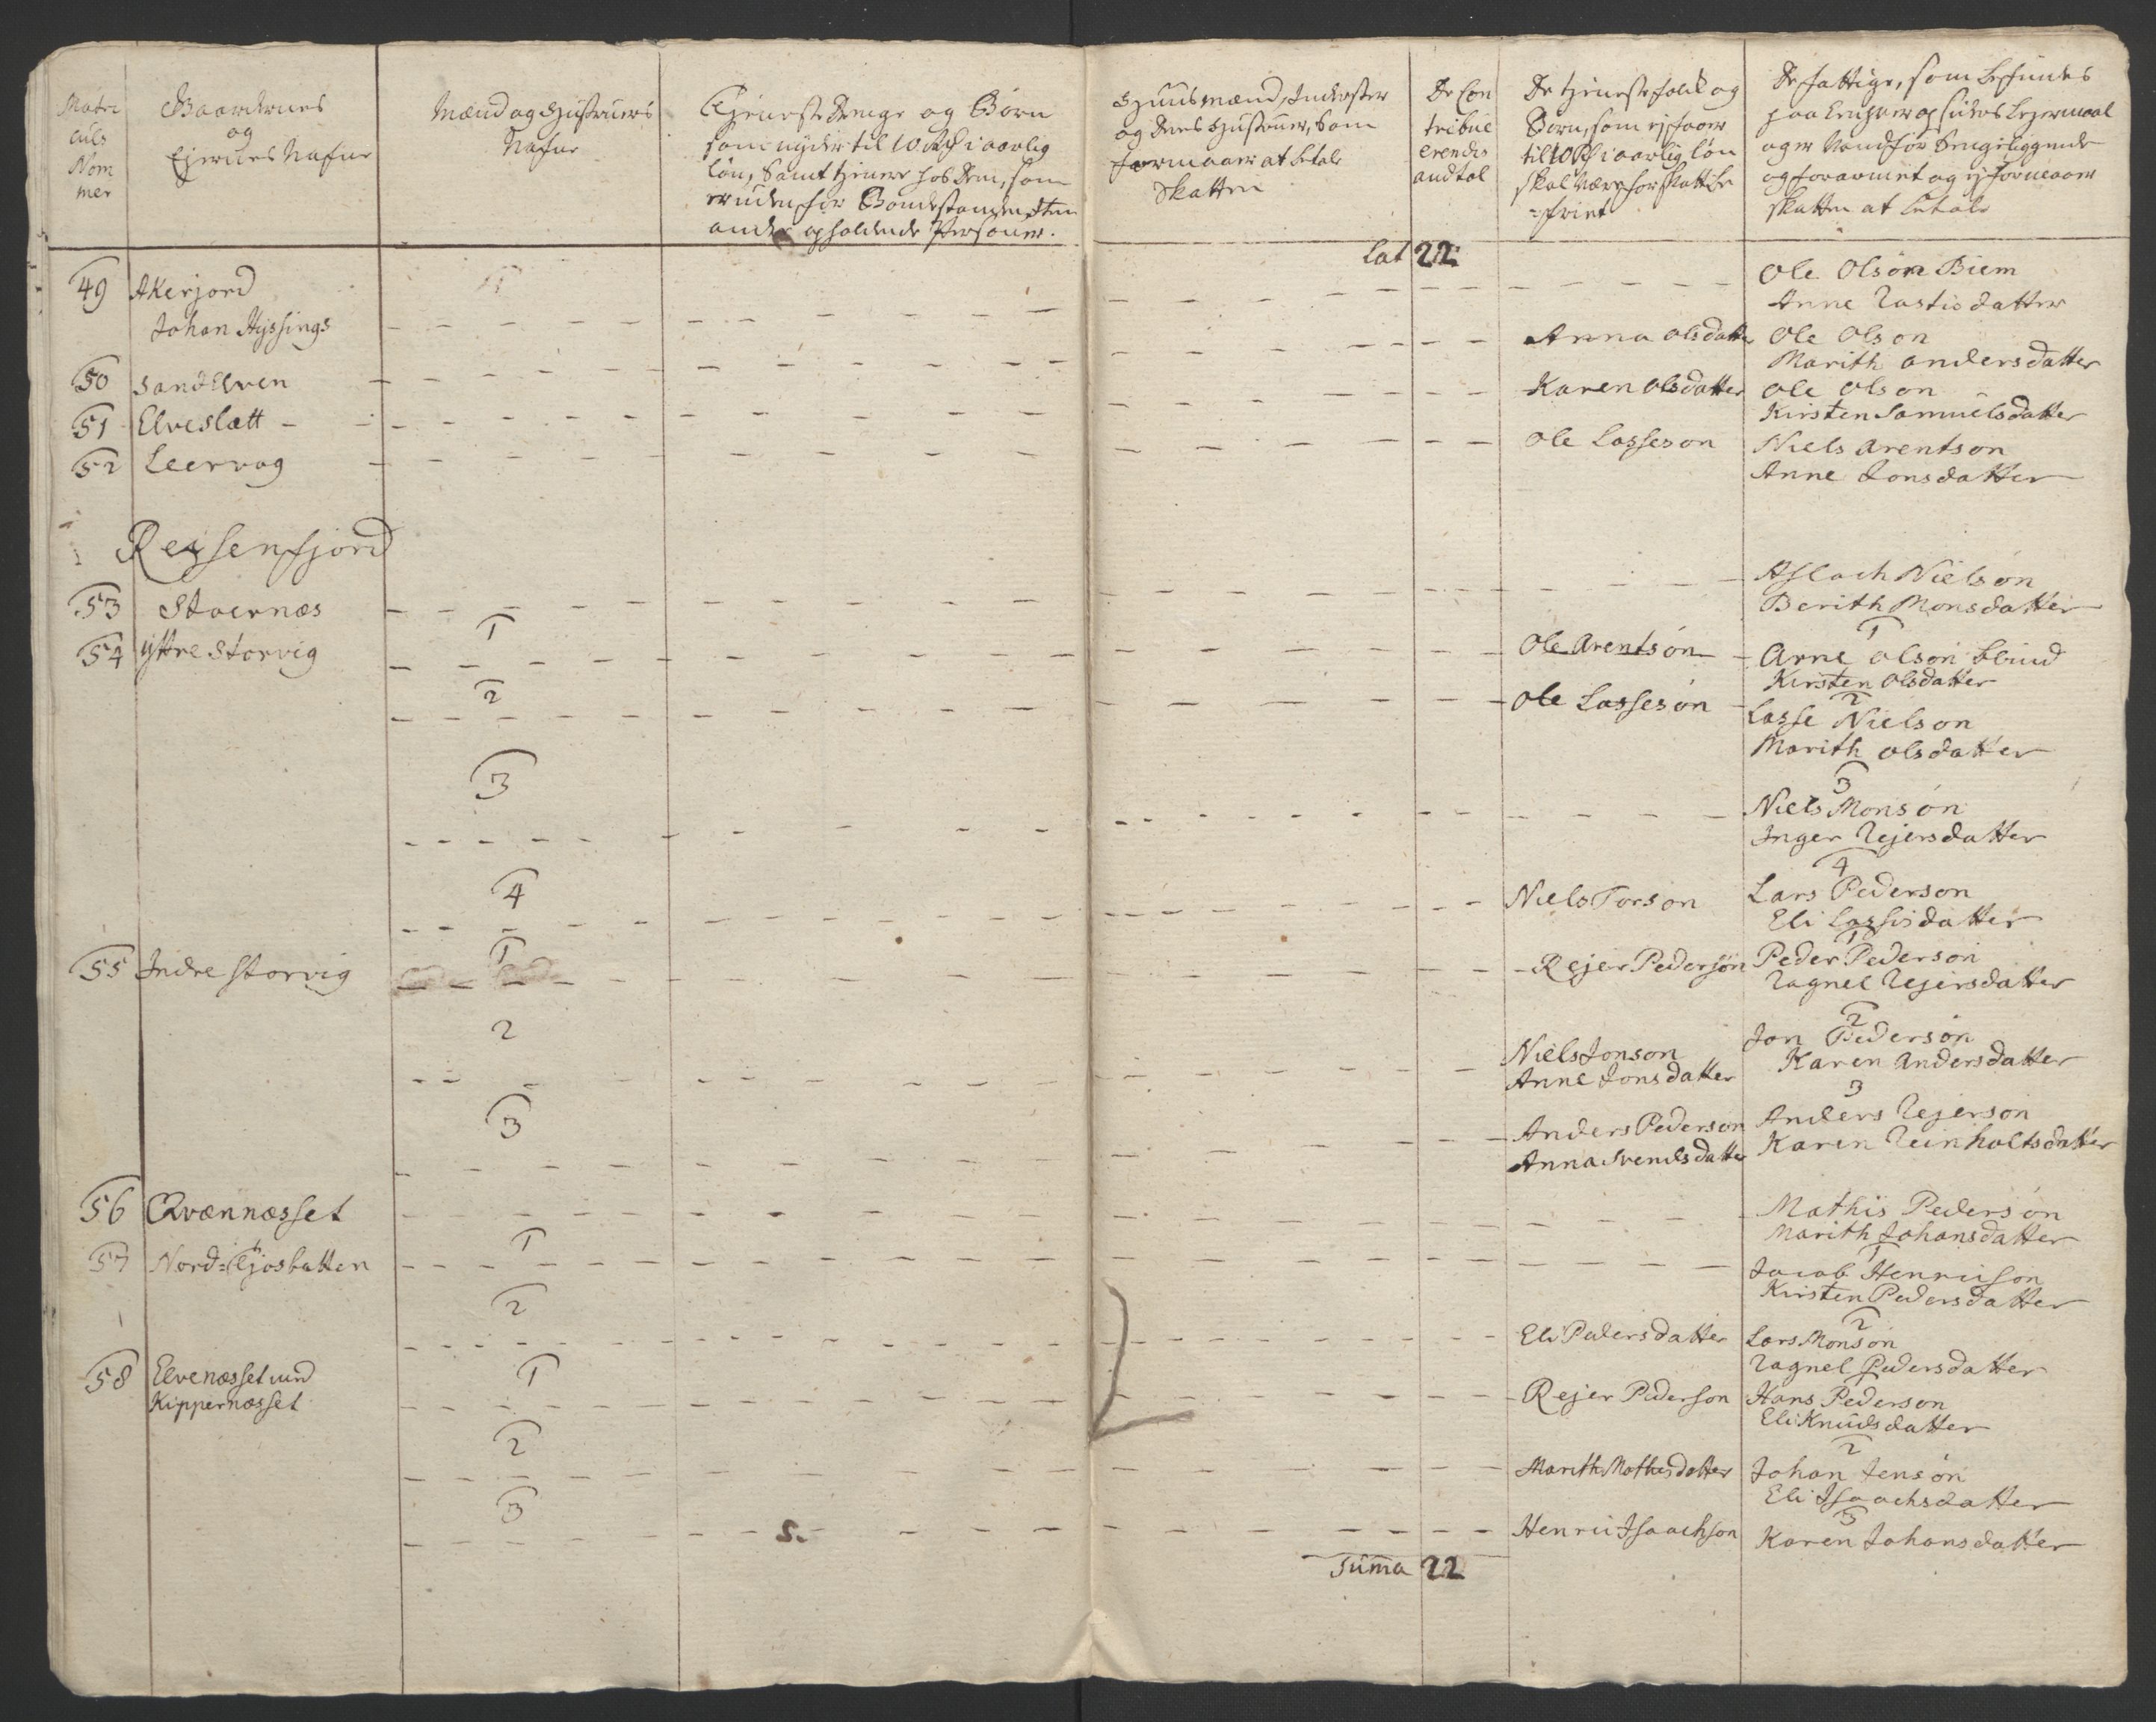 Matri
culs
Nom
mer
Gaardernes
og
Ejernes Nafne
Mænd og Hustruers
Nafne
Tjeneste Drenge og Börn
som nyder til 10 Rdr i aarlig
lön, Samt tjener hos dem, som
er uden for Bondestanden
andre opholdende Personer.
Huusmænd, Inderster
og deres Hustruer, Som
formaaer at betale
Skatten
De Con
tribue
erendes
andtal
De tjeneste folk og
Börn, som ej faaer
til 10 Rd i aarlig lön
skal være for skatt be
=friet
De fattige, som befindes
paa
og er
og forarmet og ej formaaer
skatten at betale
Lat 22
49 Akerjord
Johan Hyssings
Ole Olsön Biem
Anne datter
50 Sandelven
Anna Olsdatter
Ole Olson
Marith andersdatter
51 Elveslætt
Karen Olsdatter
Ole Olson
Kirsten Samuelsdatter
52 Leervog
Ole Lasseson
Niels Arentson
Anne Jonsdatter
Reisenfjord
53 Stoernæs
Aslach Nielsön
Berith Monsdatter
54 yttre Storvig
1
Ole Arentsön
1
Arne Olsön blind
Kirsten Olsdatter
2
Ole Lassesön
2
Lasse Nielson
Marith Olsdatter
3
3
Niels Monsön
Inger Rejersdatter
4
Niels Torson
4
Lars Pederson
Eli Lassisdatter
55 Indre Storvig
1
Rejer Pedersön
1
Peder Pederson
Ragnel Rejersdatter
2
Niels Jonson
Anne Jonsdatter
2
Jon Pedersön
Karen Andersdatter
3
Anders Pederson
Anna Svendsdatter
3
Anders Rejerson
Karen Reinholtsdatter
56 Qvænnæsset
Mathis Pedersön
Marith Johansdatter
57 Nord=Tjosbatten
1
1
Jacob Henricson
Kirsten Pedersdatter
2
Eli Pedersdatter
2
Lars Monsön
Ragnel Pedersdatter
58 Elvenæsset med
Kippernæsset
1
Rejer Pederson
Hans Pederson
Eli Knudsdatter
2
Marith Mathisdatter
2
Johan Jensön
Eli Isaachsdatter
3
S.
Henric Isaachson
3
Karen Johansdatter
Summa 22